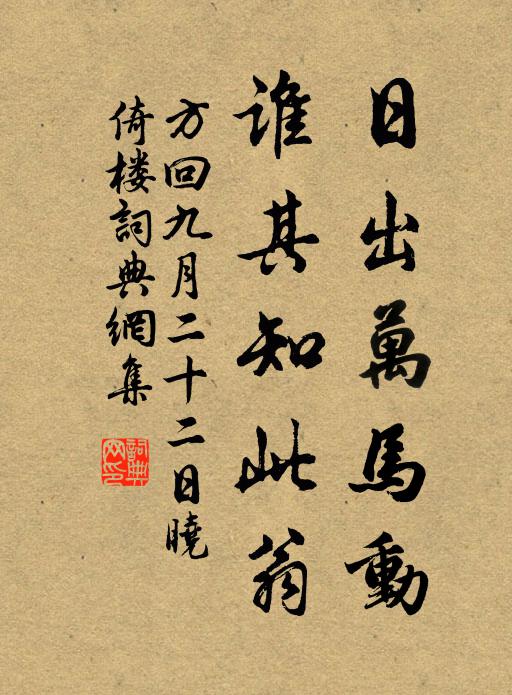 日出萬馬動
誰其知此翁
方回九月二十二日曉
倚樓詞典網集
詞典网印